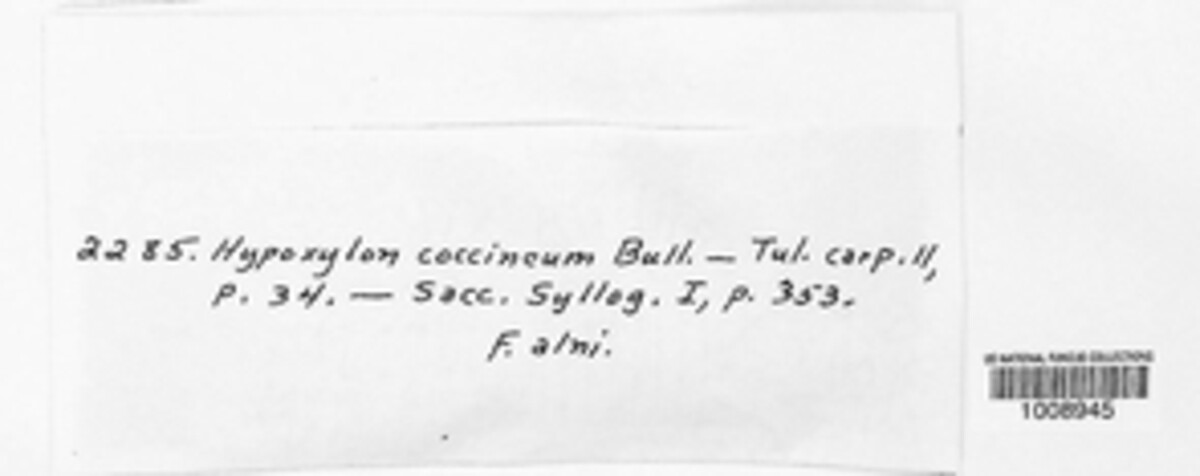 2285. Hypoxylon coccineum Bull. — Tul. carp. II,
p. 34. — Sacc. Syllog. I, p. 353.
F. alni.
US NATIONAL FUNGUS COLLECTIONS
1008945